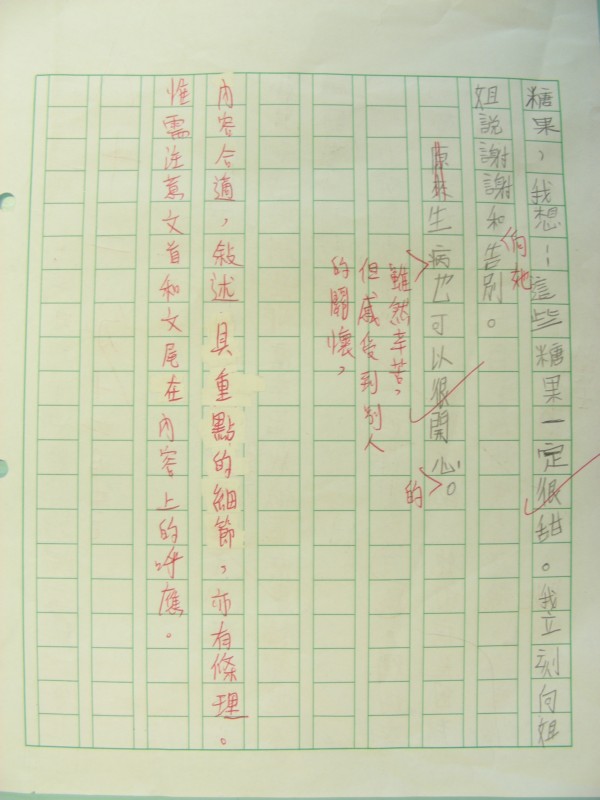 糖果，我想：這些糖果一定很甜。我立刻向姐
姐說謝謝和告別。
向她
生病也可以很開心。
雖然辛苦，
但感受到別人
的關懷，
的
內容合適，敍述具重點的細節，亦有條理。
惟需注意文首和文尾在內容上的呼應。